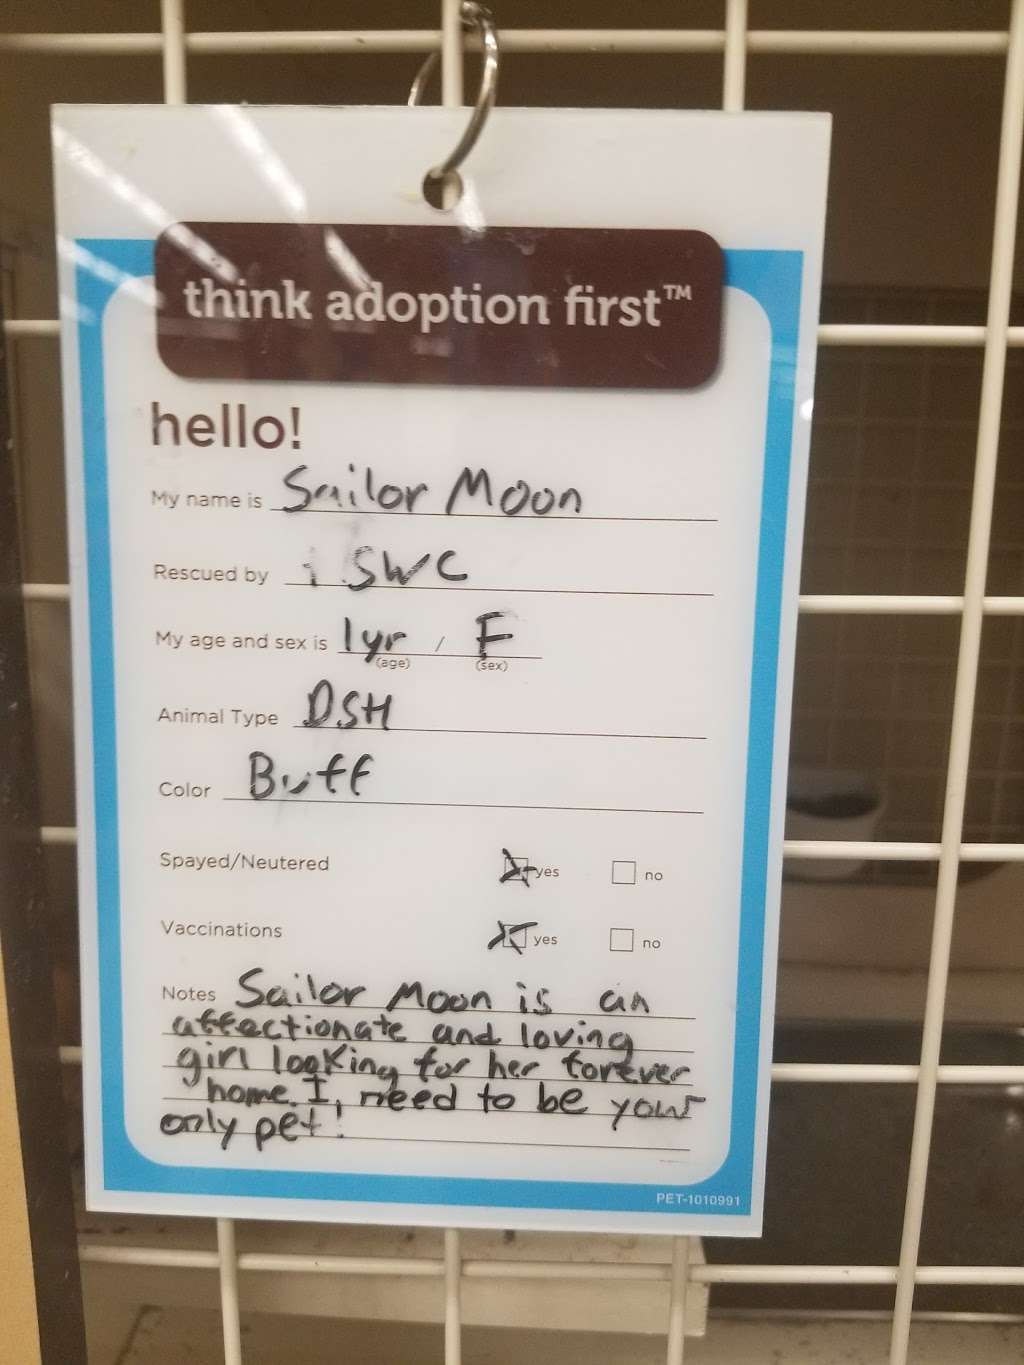 think adoption first™
hello!
My name is Sailor Moon
Rescued by SWC
My age and sex is 1yr / F
(age) (sex)
Animal Type DSH
Color Buff
Spayed/Neutered yes no
Vaccinations yes no
Notes Sailor Moon is an
affectionate and loving
girl looking for her forever
home. I need to be your
only pet!
PET-1010991